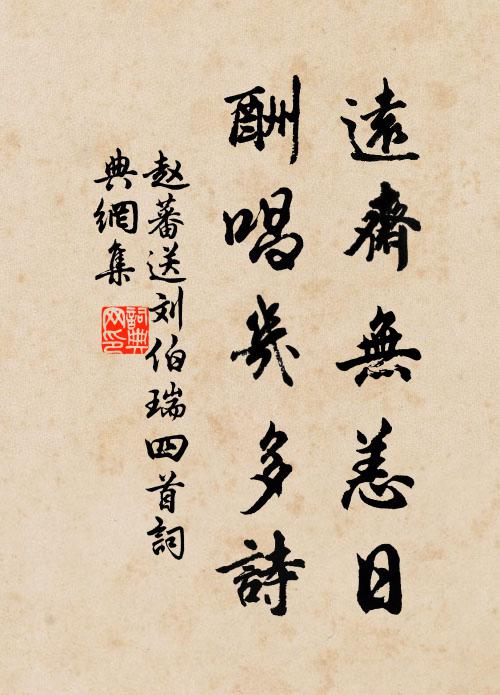 遠齋無恙日
酬唱幾多詩
赵蕃送刘伯瑞四首詞
典網集
詞典
网印